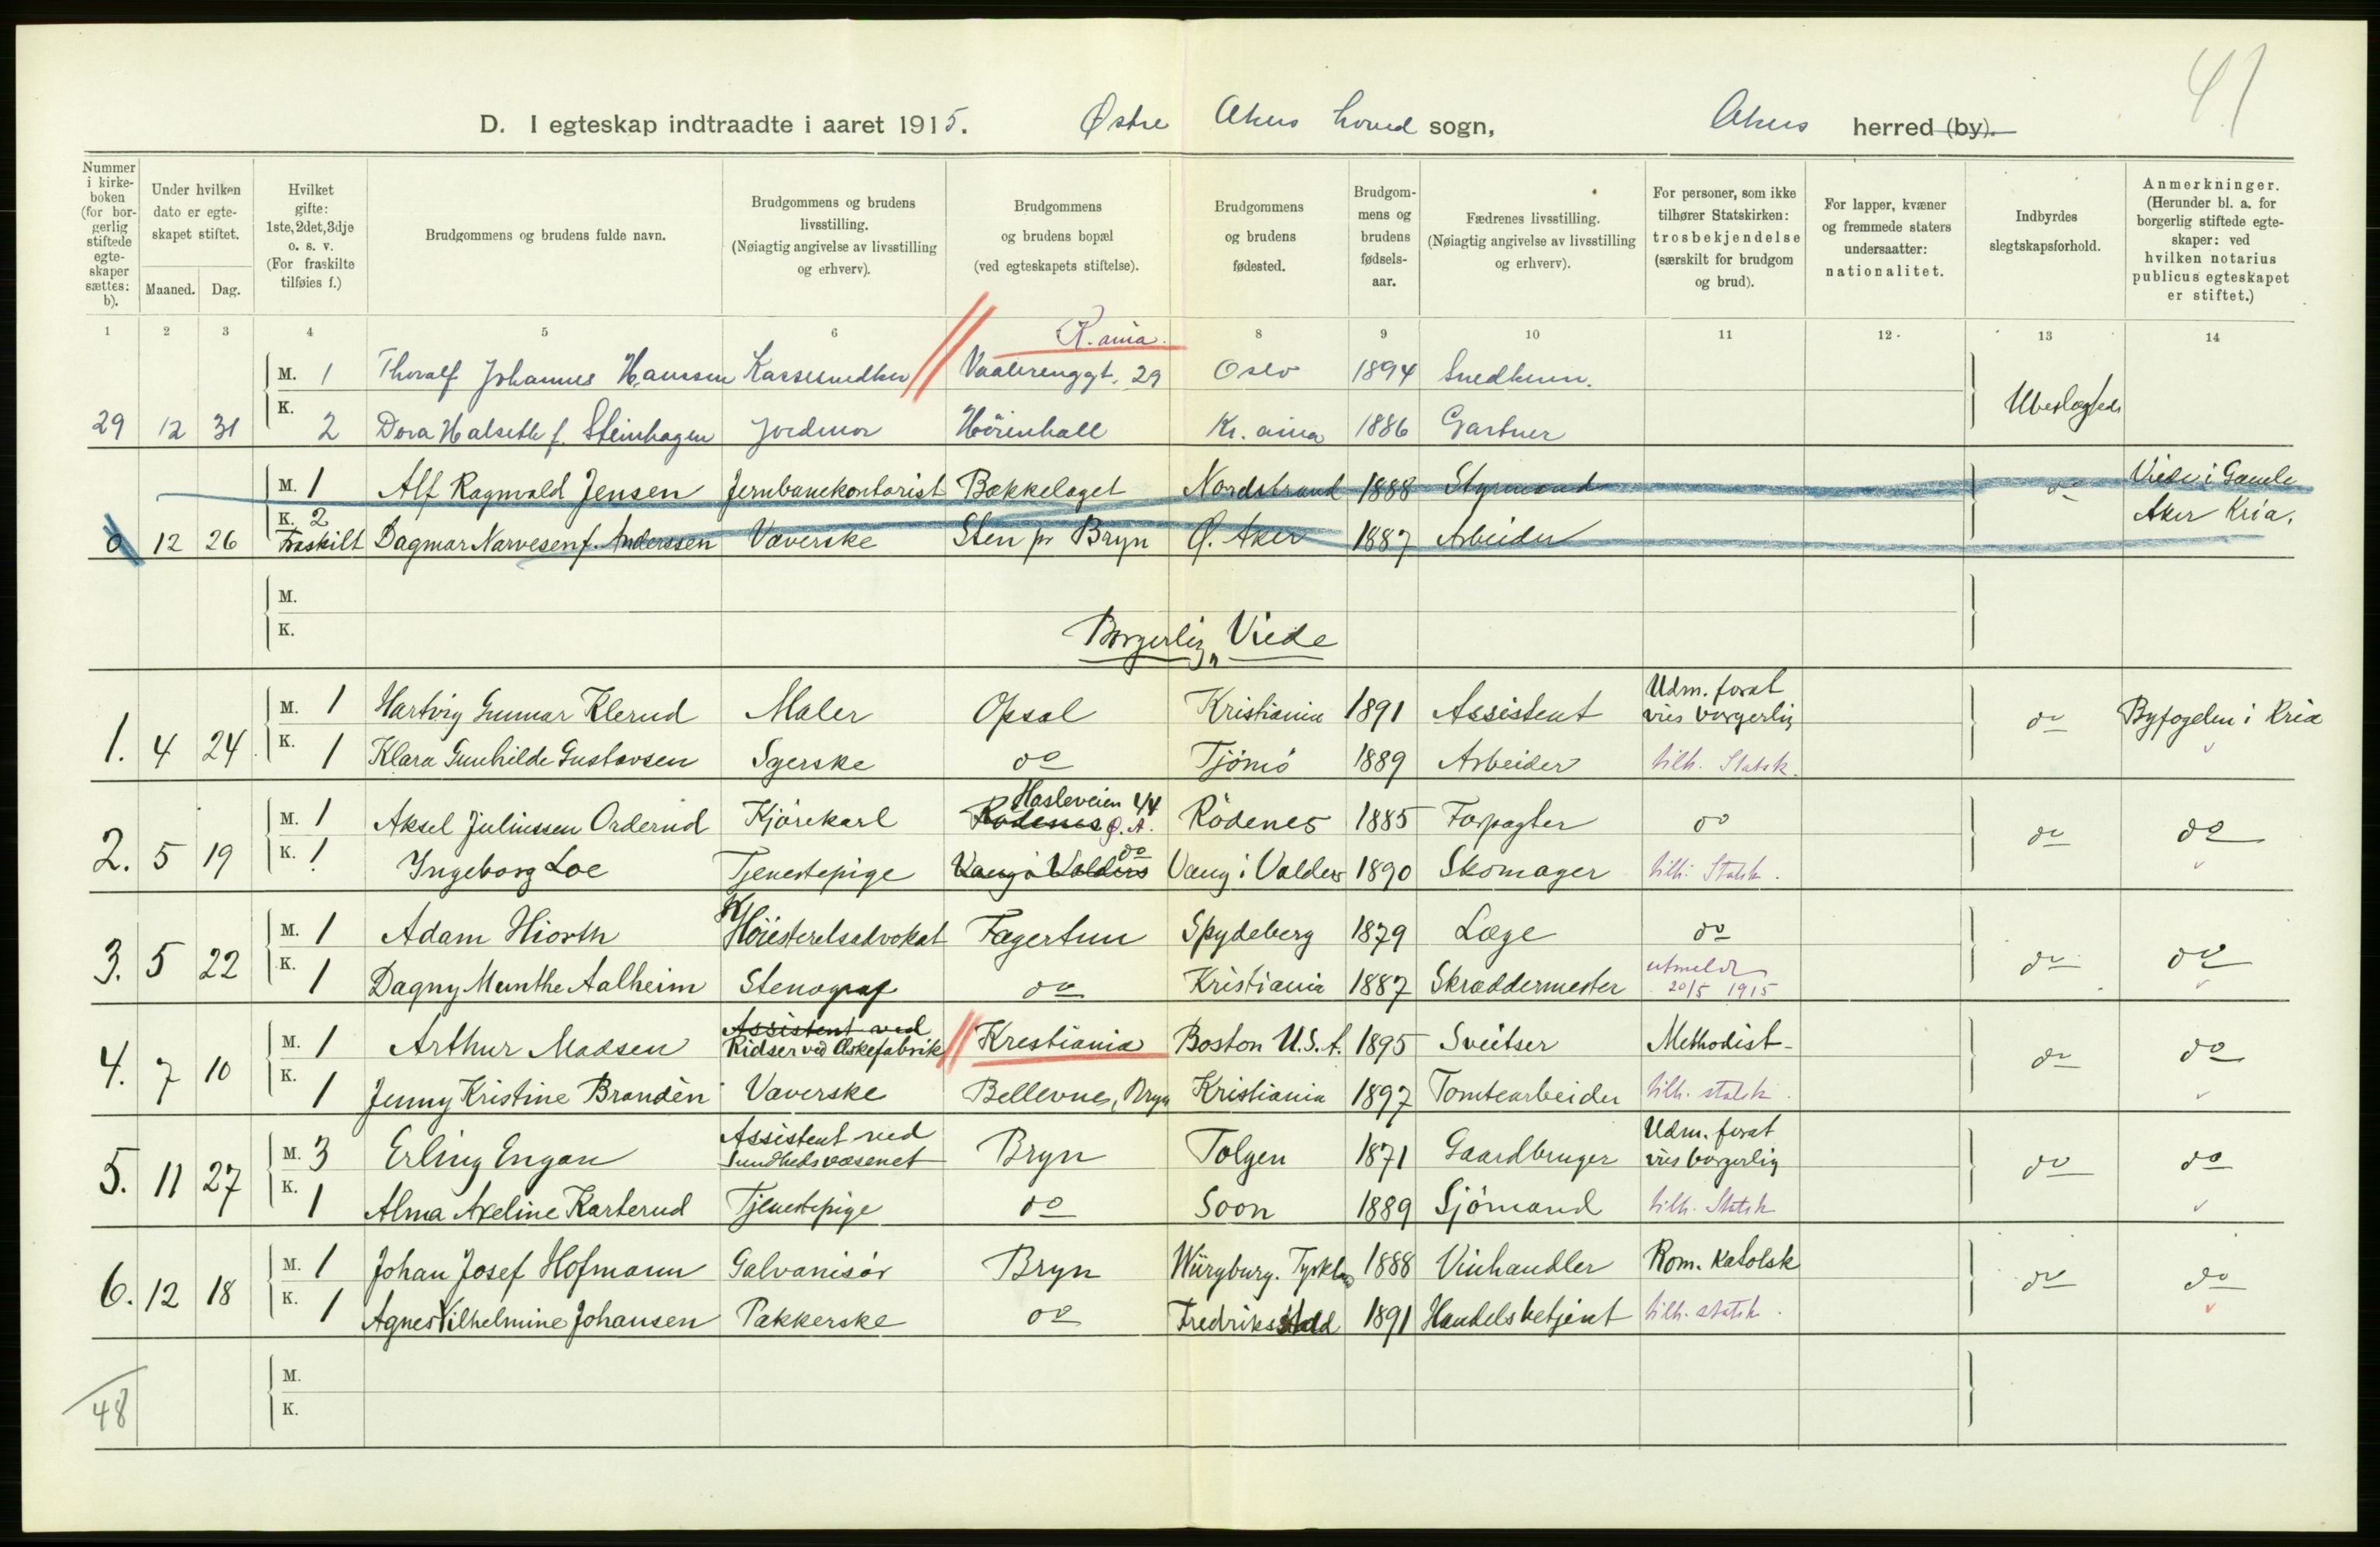 41
D. I egteskap indtraadte i aaret 1915. Østre Akers hoved sogn, Akers herred (by).
Nummer i kirkeboken (for borgerlig stiftede egteskaper sættes: b).
Under hvilken dato er egteskapet stiftet.
Maaned. Dag.
Hvilket gifte: 1ste, 2det, 3dje o. s. v. (For fraskilte tilføies f.)
Brudgommens og brudens fulde navn.
Brudgommens og brudens livsstilling. (Nøiagtig angivelse av livsstilling og erhverv).
Brudgommens og brudens bopæl (ved egteskapets stiftelse).
Brudgommens og brudens fødested.
Brudgommens og brudens fødselsaar.
Fædrenes livsstilling. (Nøiagtig angivelse av livsstilling og erhverv).
For personer, som ikke tilhører Statskirken: trosbekjendelse (særskilt for brudgom og brud).
For lapper, kvæner og fremmede staters undersaatter: nationalitet.
Indbyrdes slegtskapsforhold.
Anmerkninger. (Herunder bl. a. for borgerlig stiftede egteskaper: ved hvilken notarius publicus egteskapet er stiftet.)
1 2 3 4 5 6 8 9 10 11 12 13 14
K.ania.
M. 1 Thoralf Johannes Hanssen Kassesnedker Vaalerenggt. 29 Oslo 1894 Snedkerm. Ubeslægtede
29 12 31 K. 2 Dora Halseth f. Steinhagen Jordmor Höienhall Kr. ania 1886 Gartner
M. 1 Alf Ragnvald Jensen Jernbanekontorist Bækkelaget Nordstrand 1888 Styrmand do Viede i Gamle
0 12 26 K. 2 Fraskilt Dagmar Narvesen f. Anderssen Væverske Sten pr Bryn Ø. Aker 1887 Arbeider Aker Kria.
M.
K.
Borgerlig Viede
M. 1 Hartvig Gunnar Klerud Maler Opsal Kristiania 1891 Assistent Udm. forat vies borgerlig do Byfogden i Kria
1. 4 24 K. 1 Klara Gunhilde Gustavsen Syerske do Tjömö 1889 Arbeider tilh. Statsk.
M. 1 Aksel Juliussen Orderud Kjörekarl Rödenes Hasleveien 44 Ø. A. Rödenes 1885 Forpagter do do do
2. 5 19 K. 1 Ingeborg Loe Tjenestepige Vang i Valders do Vang i Valders 1890 Skomager tilh. Statsk.
M. 1 Adam Hiorth Höiesteretsadvokat Fagertun Spydeberg 1879 Læge do do do
3. 5 22 K. 1 Dagny Munthe Aalheim Stenograf do Kristiania 1887 Skræddermester utmeldt 20/5 1915
M. 1 Arthur Madsen Assistent ved Ridser ved Æskefabrik Kristiania Boston U.S.A. 1895 Sveitser Methodist do do
4. 7 10 K. 1 Jenny Kristine Brandèn Væverske Bellevue, Bryn Kristiania 1897 Tomtearbeider tilh. statsk.
M. 3 Erling Engan Assistent ved Sundhedsvæsenet Bryn Tolgen 1871 Gaardbruger Udm. forat vies borgerlig do do
5. 11 27 K. 1 Alma Axeline Karterud Tjenestepige do Soon 1889 Sjömand tilh. Statsk
M. 1 Johan Josef Hofmann Galvanisör Bryn Würzburg. Tyskland 1888 Vinhandler Rom. Katolsk do do
6. 12 18 K. 1 Agnes Vilhelmine Johansen Pakkerske do Fredriksstad 1891 Handelsbetjent tilh. statsk.
M.
48 K.